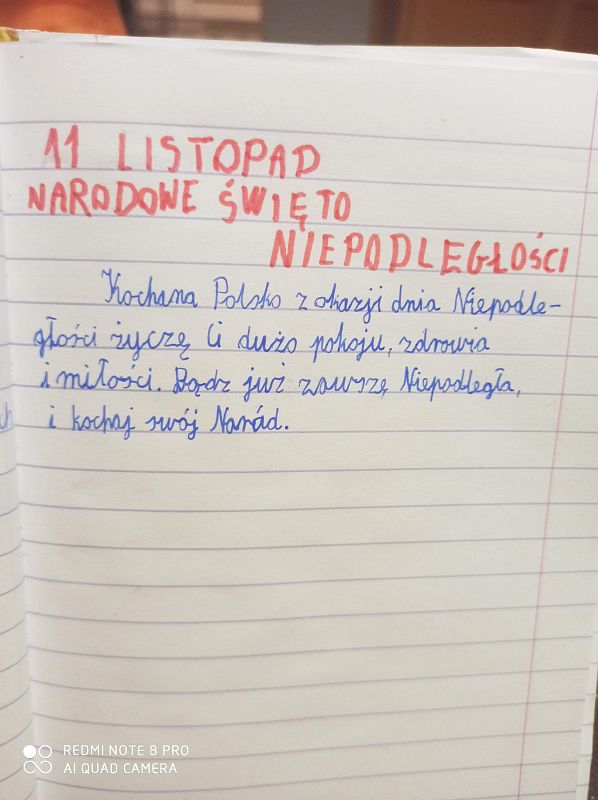 11 LISTOPAD
NARODOWE ŚWIĘTO
NIEPODLEGŁOŚCI
Kochana Polsko z okazji dnia Niepodle-
głości życzę Ci dużo pokoju, zdrowia
i miłości. Bądz już zawszę Niepodległa,
i kochaj swój Naród.
ch
REDMI NOTE 8 PRO
AI QUAD CAMERA